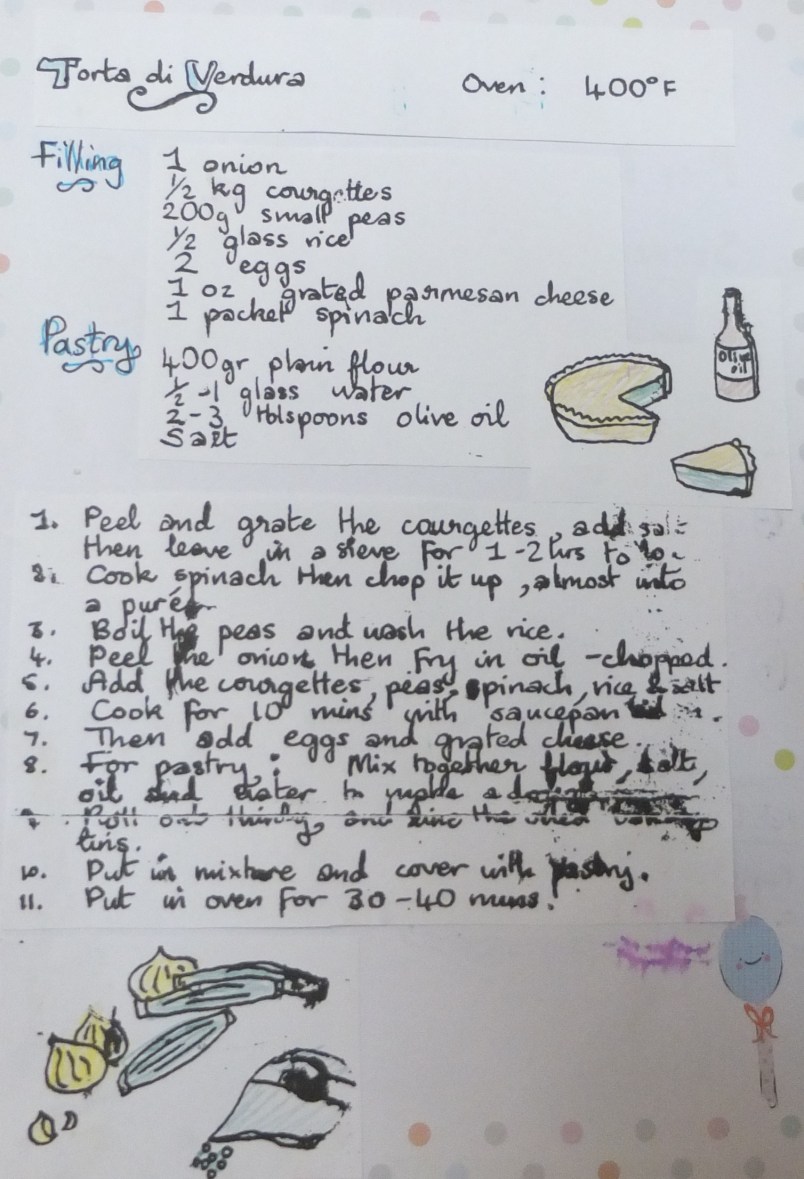 Torta di Verdura
Oven : 400°F
Filling
1 onion
½ kg courgettes
200g small peas
½ glass rice
2 eggs
1 oz grated parmesan cheese
1 packet spinach
Pastry
400gr plain flour
½ -1 glass water
2-3 tblspoons olive oil
Salt
Olive
oil
1. Peel and grate the courgettes, add salt
then leave in a sieve for 1-2 hrs to
2. Cook spinach then chop it up, almost into
a purée
3. Boil the peas and wash the rice.
4. Peel the onion then fry in oil - chopped.
5. Add the courgettes, peas, spinach, rice & salt
6. Cook for 10 mins with saucepan lid
7. Then add eggs and grated cheese.
8. For pastry : Mix together flour, salt,
oil and water to make a
Roll out thinly, and line the
tins.
10. Put in mixture and cover with pastry.
11. Put in oven for 30-40 mins.